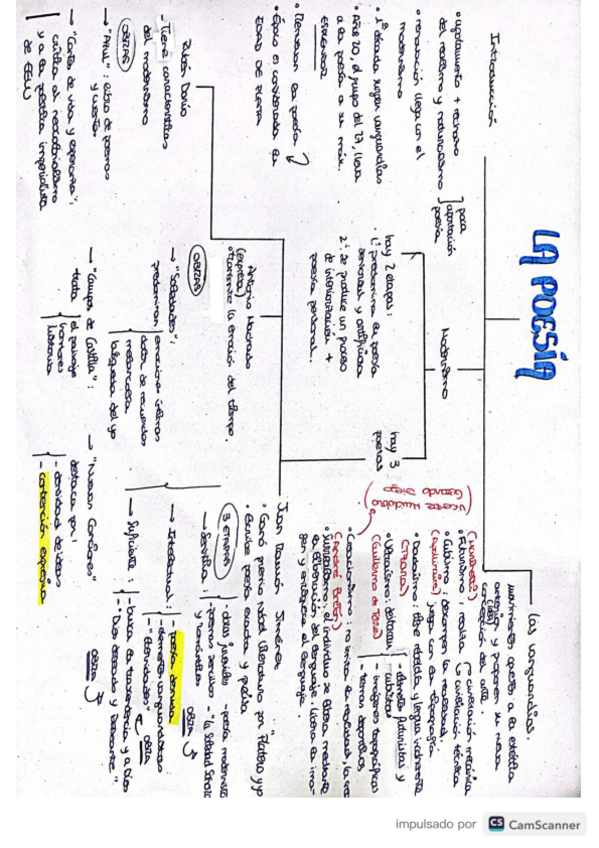 LA POESÍA
Introducción
• agotamiento + rechazo
del realismo y naturalismo
para
aportación
poesía
• renovación llega con el
modernismo
• 1ª década surgen vanguardias
• Año 20, el grupo del 27, lleva
a la poesía a su máx.
esplendor
• Renuevan la poesía
• Época es considerada la
EDAD DE PLATA
Modernismo
hay 2 etapas:
1º predomina la poesía
sensorial y artificiosa
2º se produce un proceso
de interiorización +
poesía personal.
hay 3
poetas
Rubén Darío
- Tiene características
del modernismo
OBRAS
→ "Azul": libro de poemas
y cuentos
→ "Cantos de vida y esperanza":
critica al
y a la política imperialista
de EEUU
Antonio Machado
(expresa)
• transmite la emoción del tiempo
OBRAS
→ "Soledades":
predominan
emociones íntimas
dolor de recuerdos
melancolía
búsqueda del yo
→ "Campos de Castilla":
trata
el paisaje
hombres
historia
→ "Nuevas Canciones"
destaca por:
- densidad de ideas
- contención expresiva
Juan Ramón Jiménez
• Ganó premio Nobel literatura por "Platero y yo"
• Escribe poesía exacta y precisa
3 ETAPAS
→ Sensitiva:
- obras juveniles - poesía modernista
- poemas sencillos
y románticos
- "la Soledad Sonora"
OBRA
→ Intelectual:
- poesía desnuda
- elementos vanguardistas
- "Eternidades"
OBRA
→ Suficiente:
- busca la trascendencia y a Dios
- "Dios deseado y deseante"
OBRA
Las vanguardias:
movimientos opuestos a la estética
anterior y proponen su nueva
(idea)
concepción del arte.
(Marinetti)
• Futurismo: realza
civilización mecánica
civilización técnica
• Cubismo: descompon la realidad.
(Apollinaire)
juega con la tipografía
• Dadaísmo: libre absoluta y lengua incoherente
(Tzara)
• Ultraísmo: destacan
(Guillermo de Torre)
- elementos futuristas y
cubistas
- imágenes tipográficas
- temas deportivos
• Creacionismo: no imita la realidad, la crea
(Vicente Huidobro
Gerardo Diego)
(André Breton)
• Surrealismo: el individuo se libera mediante
la liberación del lenguaje. Libera la ima-
gen y enriquece el lenguaje.
impulsado por CS CamScanner